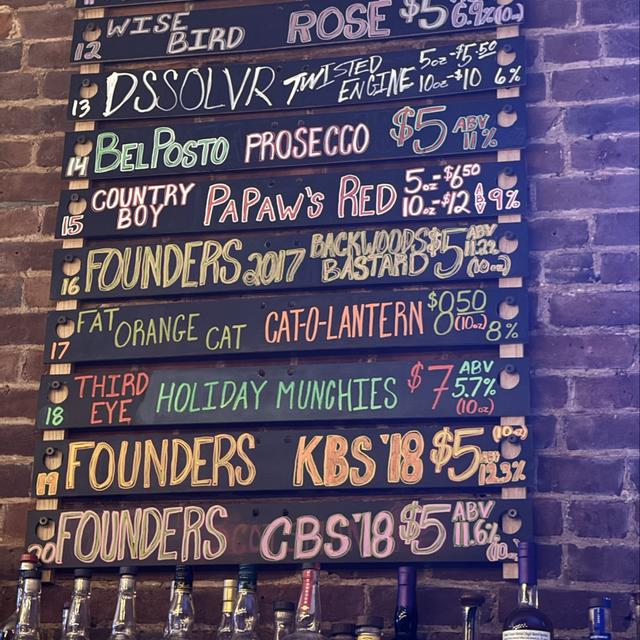 12 WISE BIRD ROSE $5 6.9% (10oz)
13 DSSOLVR TWISTED ENGINE 5oz-$5.50 10oz-$10 6%
14 BELPOSTO PROSECCO $5 ABV 11%
15 COUNTRY BOY PAPAW'S RED 5oz-$6.50 10oz-$12 ABV 9%
16 FOUNDERS 2017 BACKWOODS BASTARD $5 ABV 11.22 (10oz)
17 FAT ORANGE CAT CAT-O-LANTERN $8.50 (10oz) 8%
18 THIRD EYE HOLIDAY MUNCHIES $7 ABV 5.7% (10oz)
19 FOUNDERS KBS '18 $5 (10oz) 12.3%
20 FOUNDERS CBS '18 $5 ABV 11.6% (10oz)